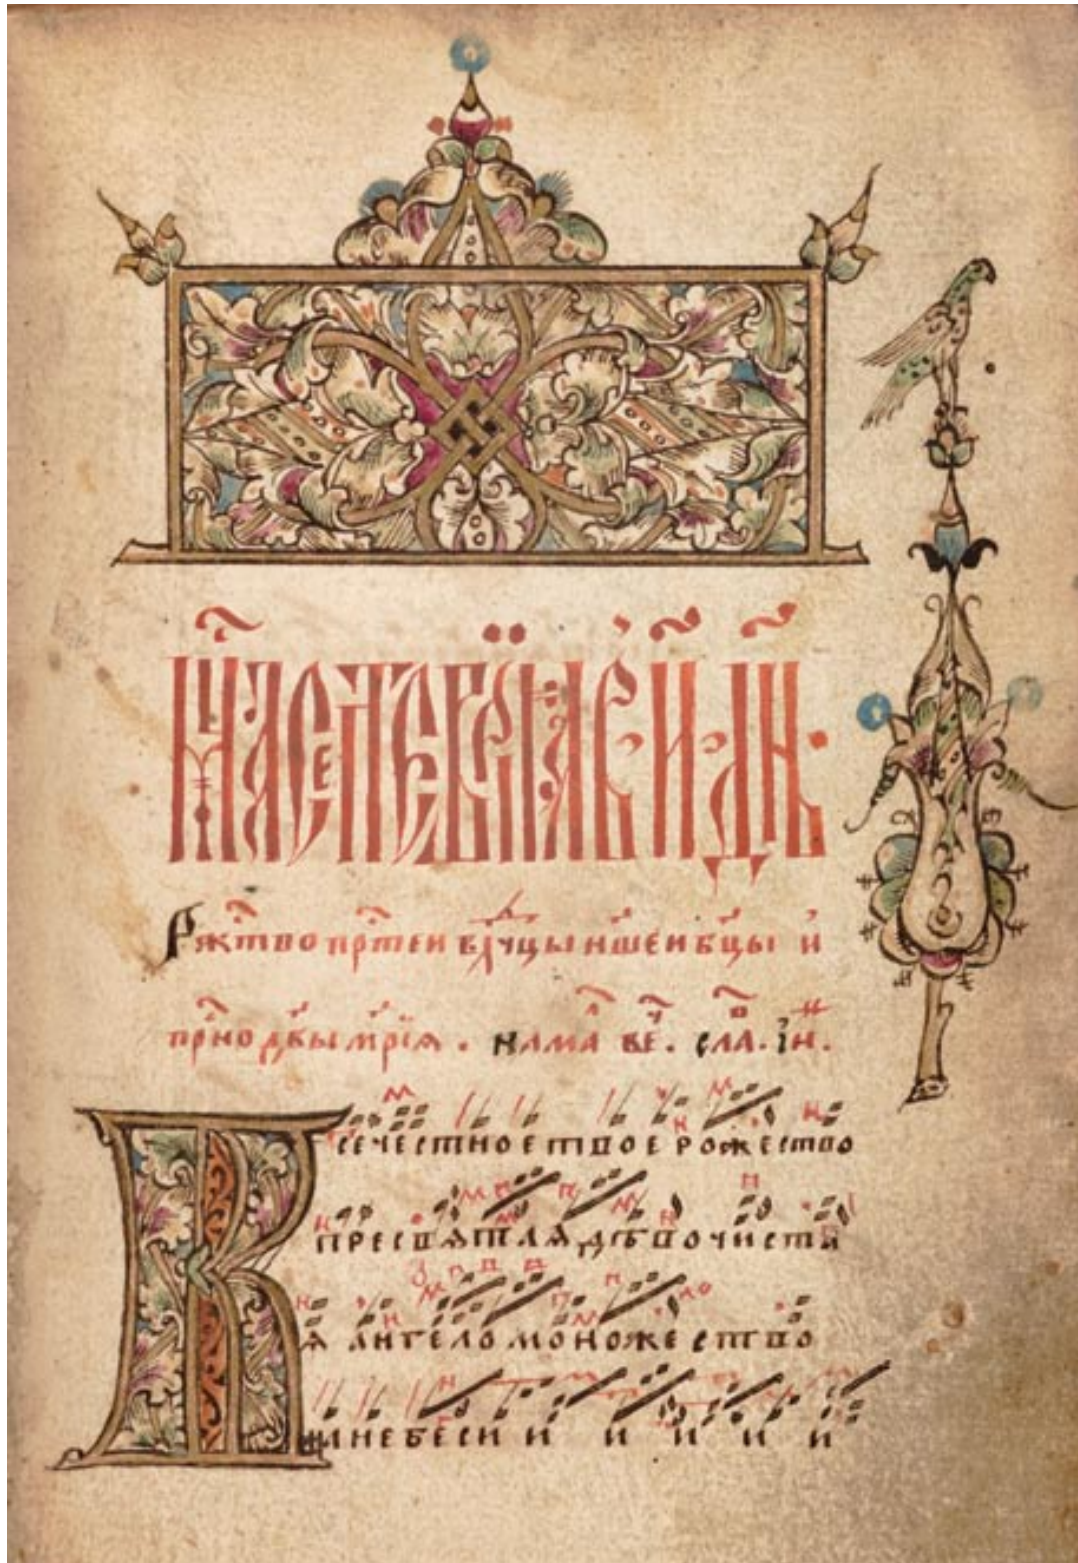 мⷭ҇ца септеврїа в҃ и҃ дн҃ь
Ржⷭ҇тво прⷭ҇теи вл҃чцы нш҃еи бц҃ы и
прⷭ҇но дв҃ы мр҃їя . на ма вⷱ҇е . сла . ін .
Всечестное твое рожество
пресвятая дѣво чистая
я ангело моножество
на небеси и и и и и